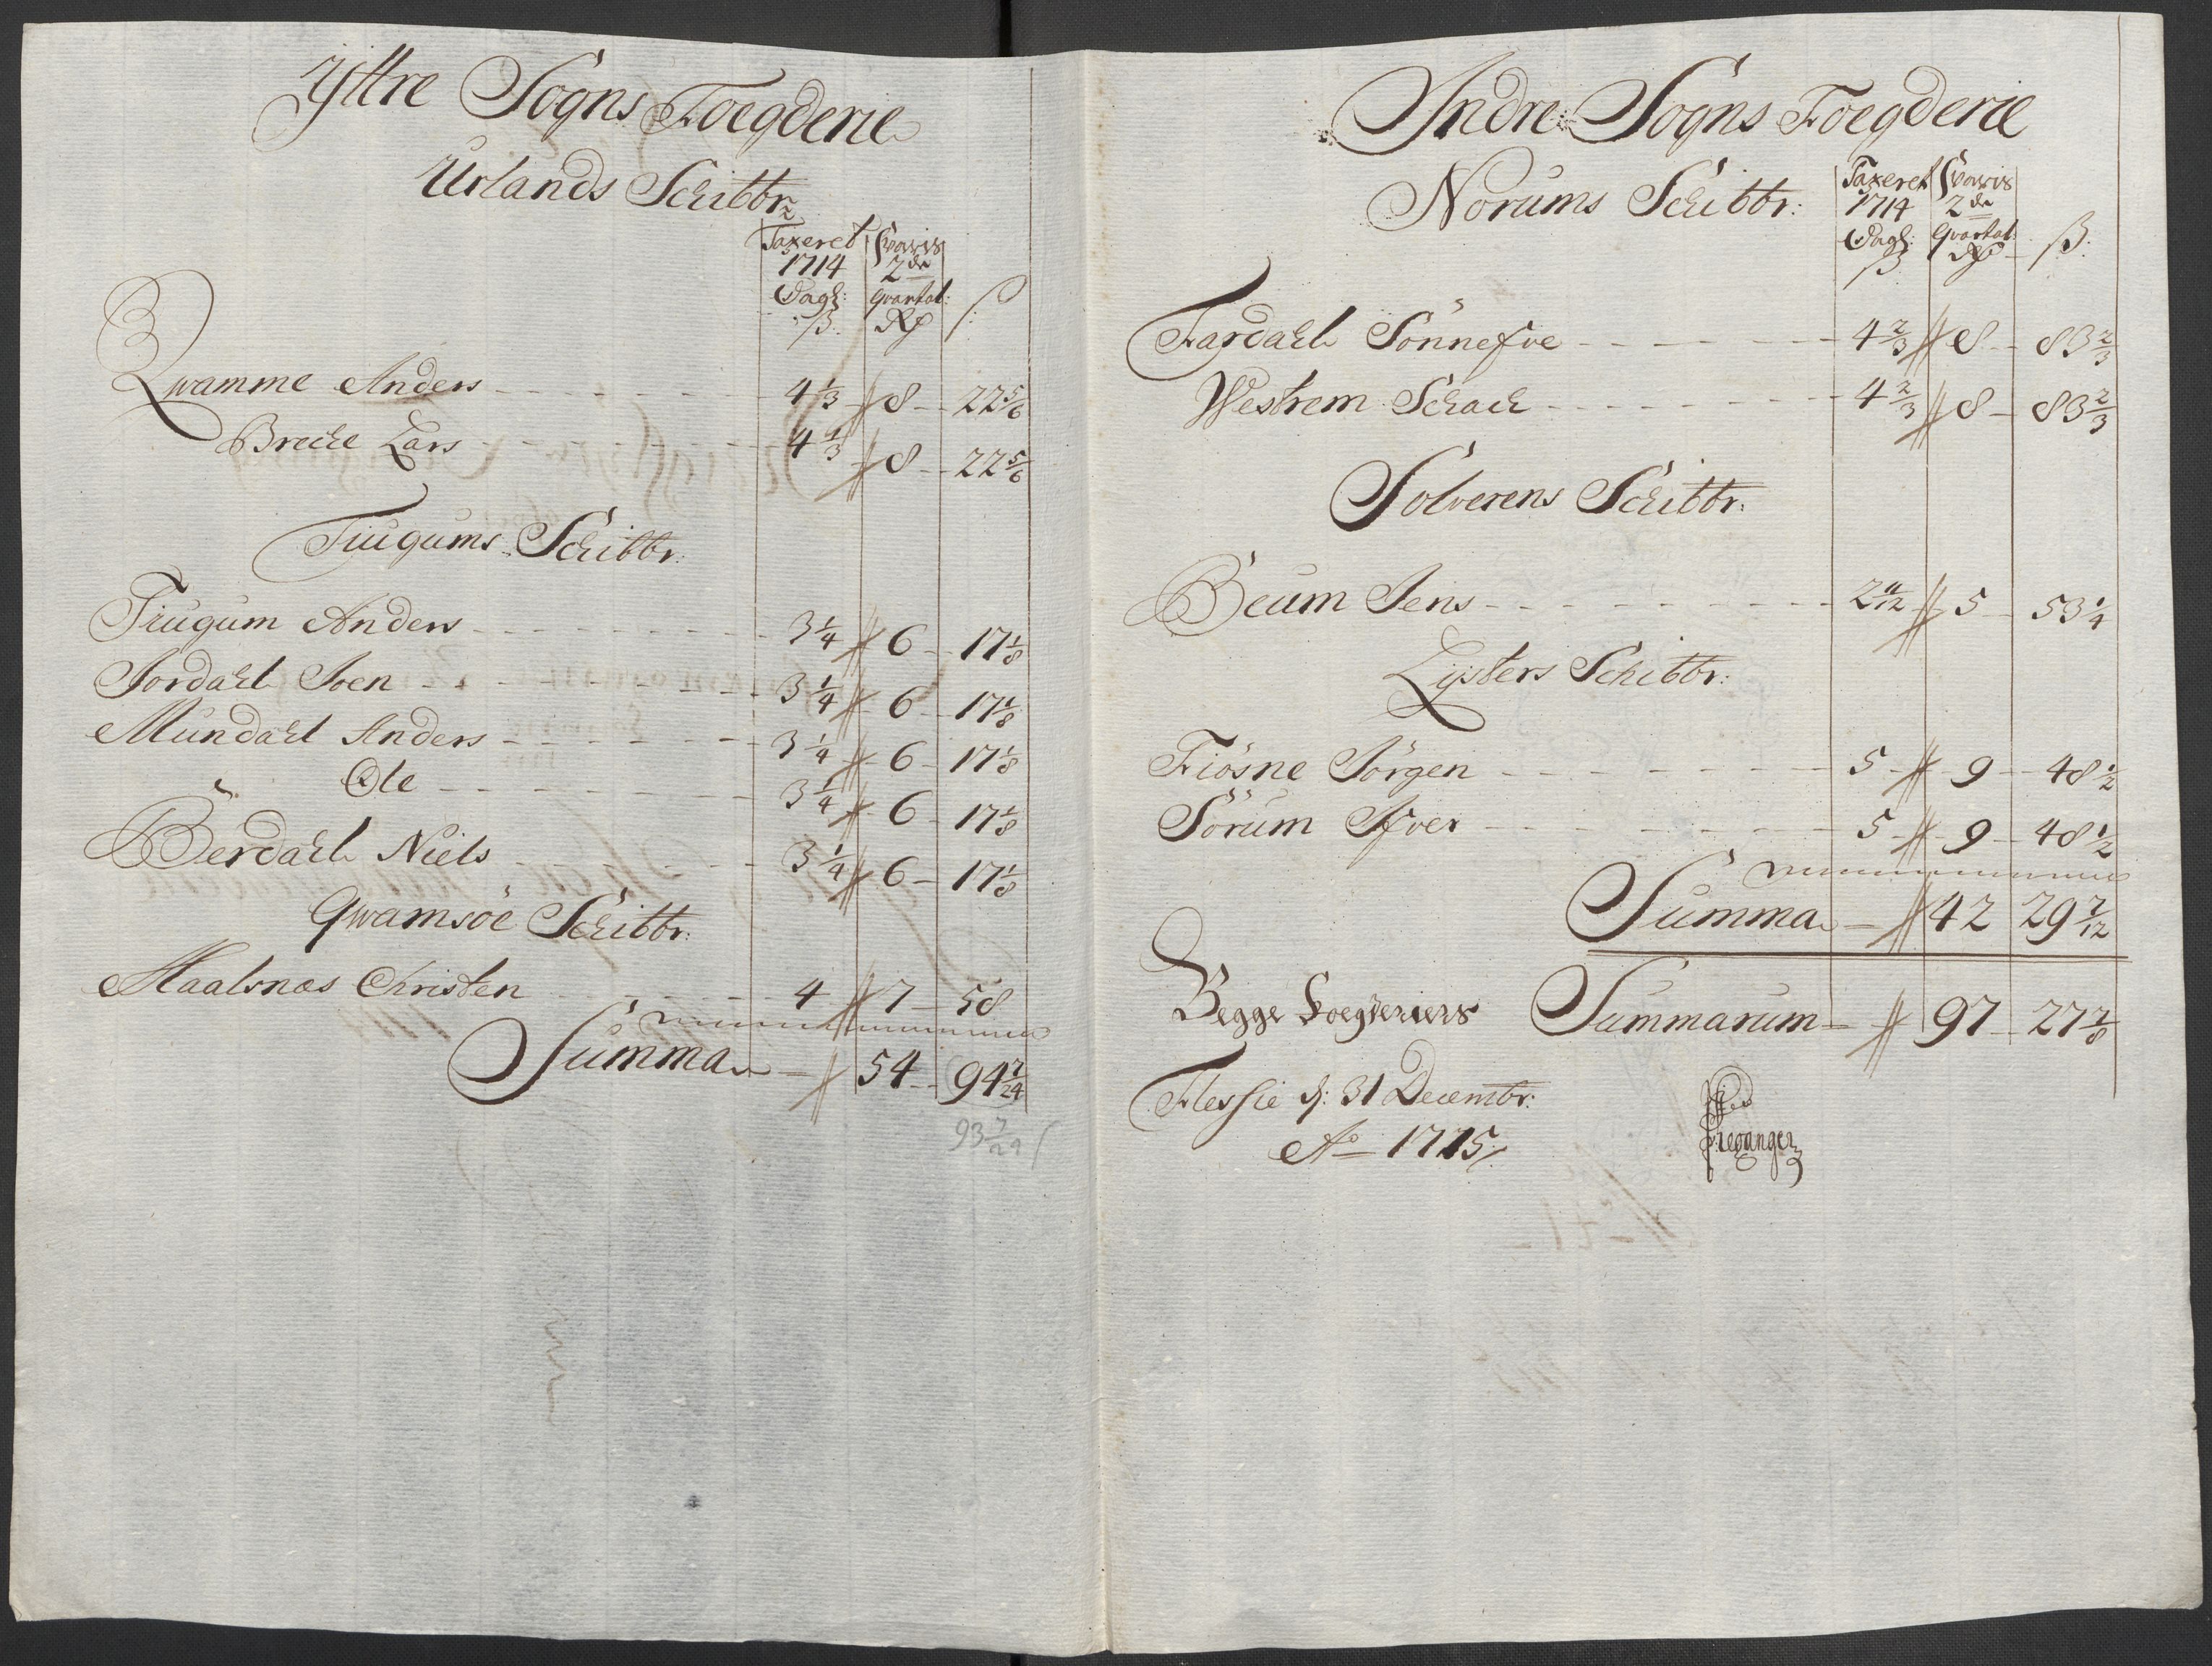 Ÿttre Sogns Foegderie
Urlands Schibbr:
Taxeret Svaris
1714 2de
Dagl: Qvartal:
ß. Rd ß:
Qvamme Anders - - - - - 4 1/3 // 8 - 22 5/6
Breche Lars - - - - - 4 1/3 // 8 - 22 5/6
Tiugums Schibbr:
Tiugum Anders - - - - - 3 1/4 // 6 - 17 1/8
Jordahl Joen - - - - - 3 1/4 // 6 - 17 1/8
Mundahl Anders - - - - - 3 1/4 // 6 - 17 1/8
Ole - - - - - 3 1/4 // 6 - 17 1/8
Berdahl Niels - - - - - 3 1/4 // 6 - 17 1/8
Qwamsöe Schibbr:
Haalsnæs Christen - - - - - 4 // 7 - 58
Summa - // 54 - 94 7/24
93 7/24
Indre Sogns Foegderie
Norums Schibbr:
Taxeret Svaris
1714 2de
Dagl: Qvartal:
ß. Rd ß.
Fardahl Sönnefve - - - - - 4 2/3 // 8 - 83 2/3
Westrem Schack - - - - - 4 2/3 // 8 - 83 2/3
Solverens Schibbr:
Beum Jens - - - - - 2 11/12 // 5 - 53 1/4
Lysters Schibbr:
Fiösne Jörgen - - - - - 5 - // 9 - 48 1/2
Sörum Ifver - - - - - 5 - // 9 - 48 1/2
Summa - // 42 29 7/12
Begge Foegderiers Summarum - // 97 - 27 7/8
Flessie d: 31 Decembr:
Ao 1715/